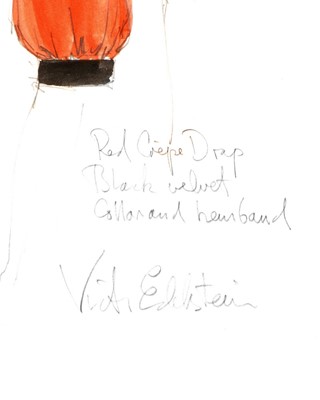 Red Crêpe Drap
Black velvet
Collar and hemband
Victor Edelstein